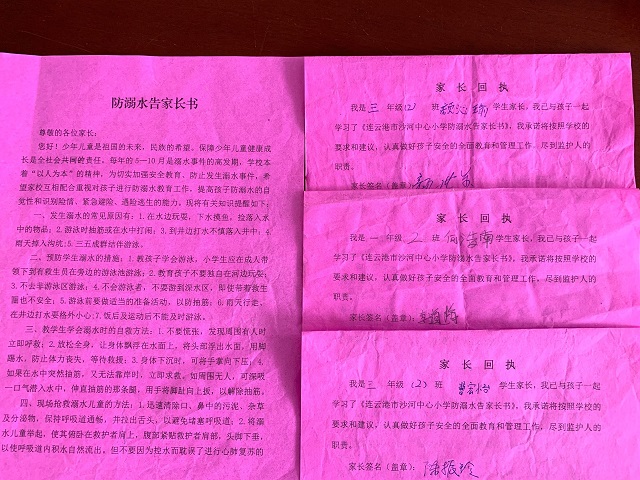 防溺水告家长书
尊敬的各位家长：
您好！少年儿童是祖国的未来，民族的希望。保障少年儿童健康成
长是全社会共同的责任，每年的5-10月是溺水事件的高发期，学校本
着“以人为本”的精神，为切实加强安全教育、防止发生溺水事件，希
望家校互相配合重视对孩子进行防溺水教育工作，提高孩子防溺水的自
觉性和识别险情、紧急避险、遇险逃生的能力，现将有关知识提醒如下：
一、发生溺水的常见原因有：1.在水边玩耍，下水摸鱼，捡落入水
中的物品；2.游泳时抽筋或在水中打闹；3.到井边打水不慎落入井中；4.
雨天掉入沟坑；5.三五成群结伴游泳。
二、预防学生溺水的措施：1.教孩子学会游泳。小学生应在成人带
领下到有救生员在旁边的游泳池游泳；2.教育孩子不要独自在河边玩耍；
3.不去非游泳区游泳；4.不会游泳者，不要游到深水区，即使带着救生
圈也不安全；5.游泳前要做适当的准备活动，以防抽筋；6.雨天行走，
在井边打水要格外小心；7.饭后及运动后不能及时游泳。
三、教学生学会溺水时的自救方法：1.不要慌张，发现周围有人时
立即呼救；2.放松全身，让身体飘浮在水面上，将头部浮出水面，用脚
踢水，防止体力丧失，等待救援；3.身体下沉时，可将手掌向下压；4.
如果在水中突然抽筋，又无法靠岸时，立即求救。如周围无人，可深吸
一口气潜入水中，伸直抽筋的那条腿，用手将脚趾向上扳，以解除抽筋。
四、现场抢救溺水儿童的方法：1.迅速清除口、鼻中的污泥、杂草
及分泌物，保持呼吸道通畅，并拉出舌头，以避免堵塞呼吸道；2.将溺
水儿童举起，使其俯卧在救护者肩上，腹部紧贴救护者肩部，头脚下垂，
以使呼吸道内积水自然流出。但不要因为控水而耽误了进行心肺复苏的
家长回执
我是三年级（2）班 学生家长，我已与孩子一起
学习了《连云港市沙河中心小学防溺水告家长书》，我承诺将按照学校的
要求和建议，认真做好孩子安全的全面教育和管理工作，尽到监护人的
职责。
家长签名（盖章）：
家长回执
我是一年级2班 学生家长，我已与孩子一起
学习了《连云港市沙河中心小学防溺水告家长书》，我承诺将按照学校的
要求和建议，认真做好孩子安全的全面教育和管理工作，尽到监护人的
职责。
家长签名（盖章）：
家长回执
我是三年级（2）班 学生家长，我已与孩子一起
学习了《连云港市沙河中心小学防溺水告家长书》，我承诺将按照学校的
要求和建议，认真做好孩子安全的全面教育和管理工作，尽到监护人的
职责。
家长签名（盖章）：潘振玲